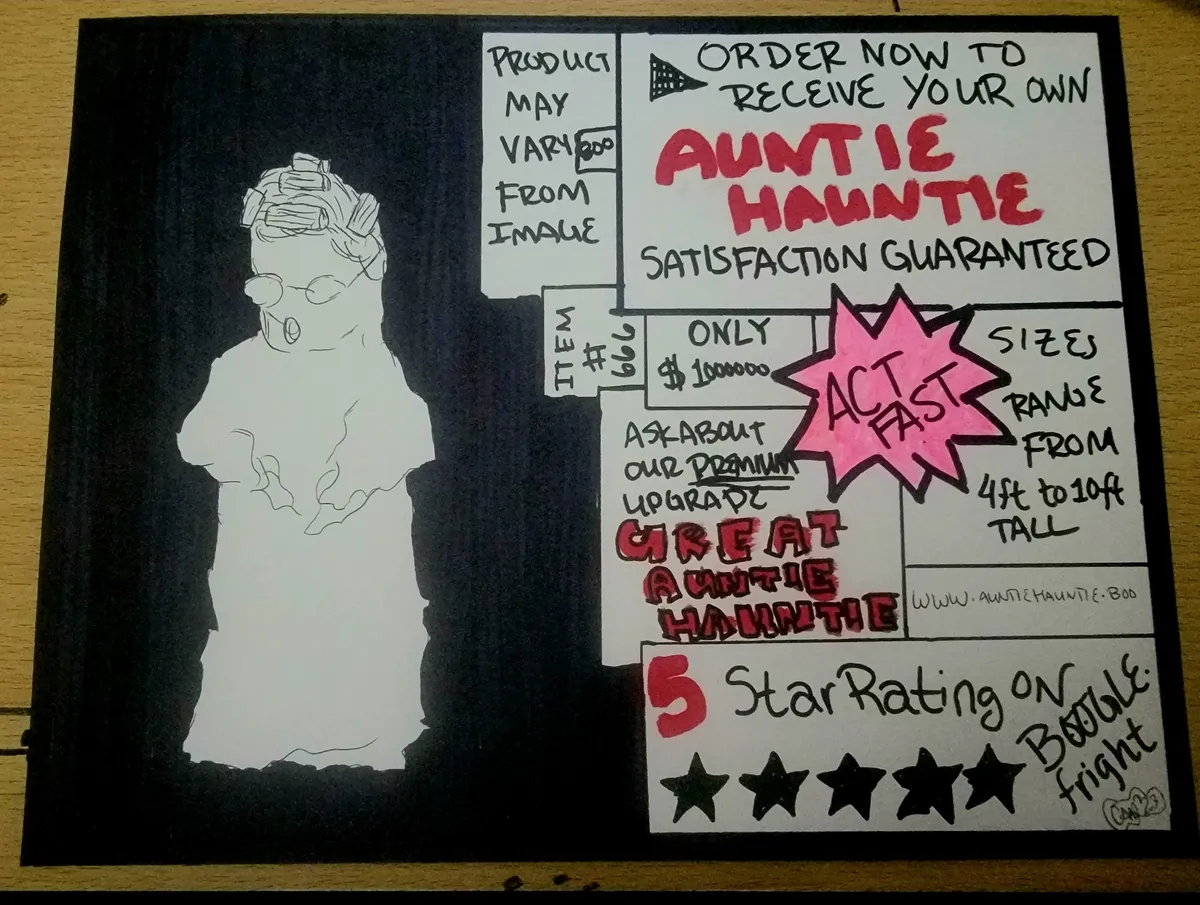 PRODUCT
MAY
VARY
FROM
IMAGE
BOO
ORDER NOW TO
RECEIVE YOUR OWN
AUNTIE
HAUNTIE
SATISFACTION GUARANTEED
ITEM
#
666
ONLY
$ 1000000
ACT
FAST
SIZES
RANGE
FROM
4ft to 10ft
TALL
ASK ABOUT
OUR PREMIUM
UPGRADE
GREAT
AUNTIE
HAUNTIE
WWW.AUNTIEHAUNTIE.BOO
5 Star Rating ON
BOOGLE.
fright